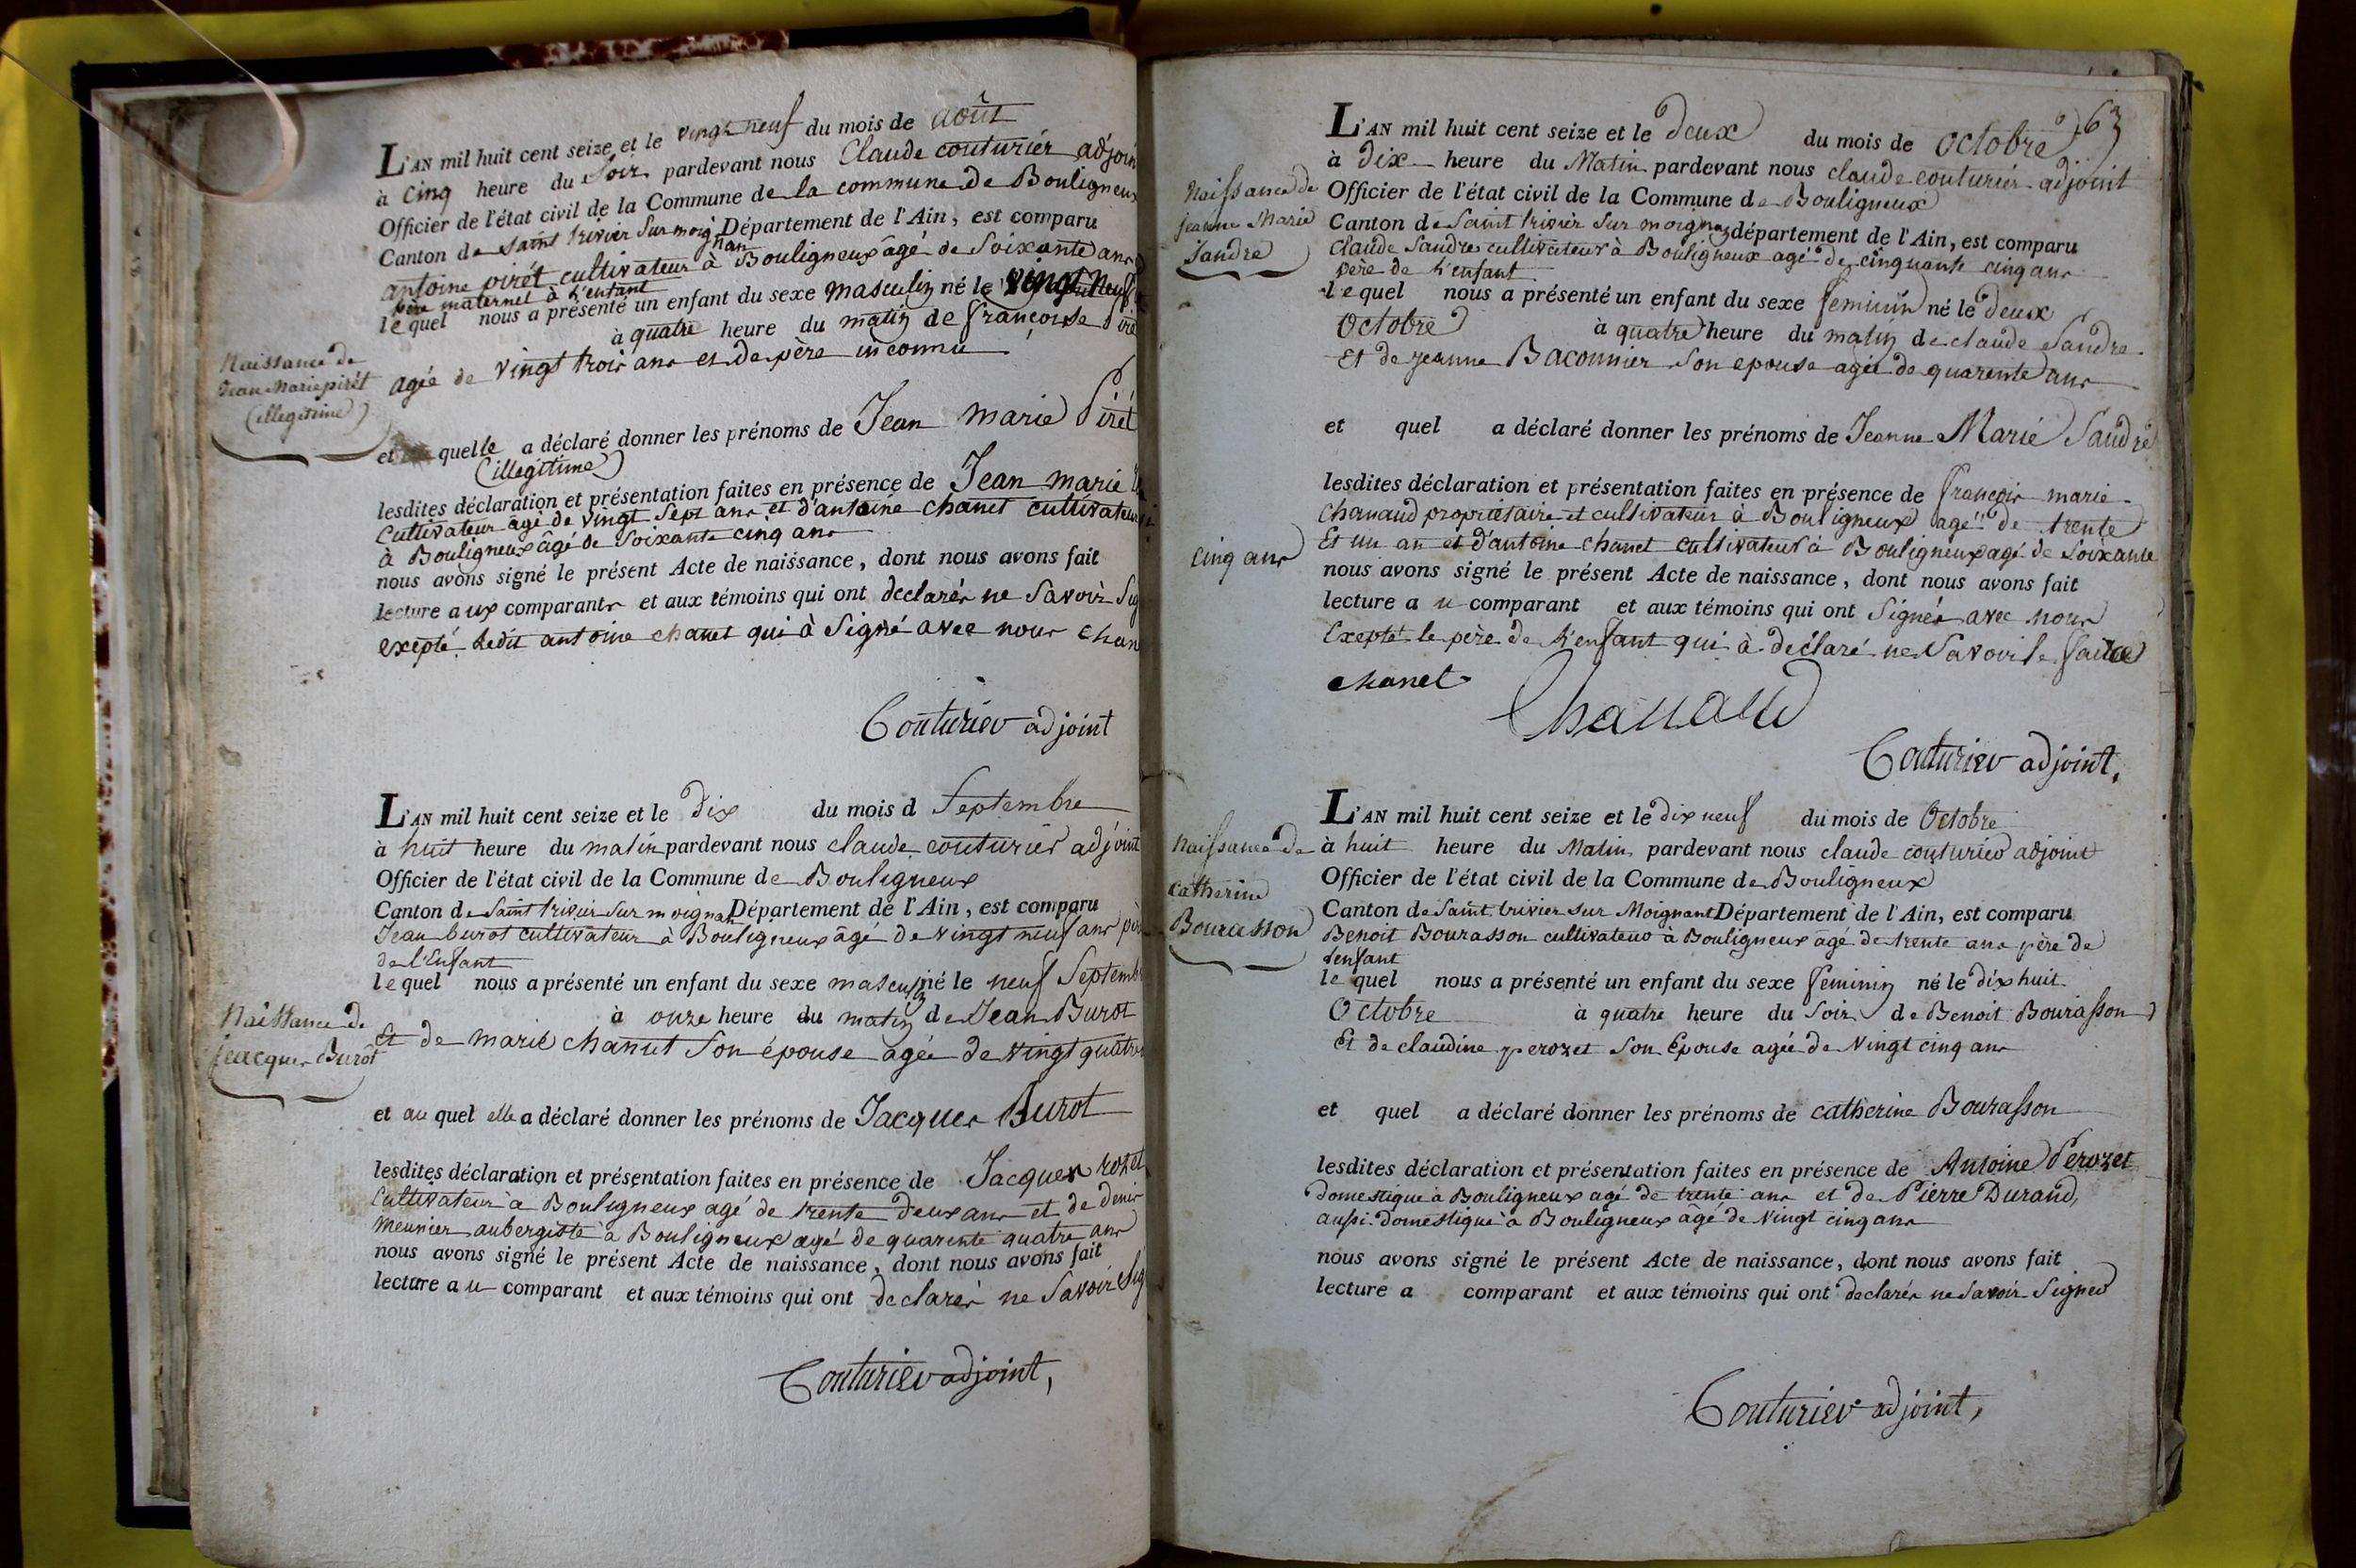 L'AN mil huit cent seize et le vingt neuf du mois de août
à cinq heure du Soir pardevant nous Claude couturier adjoin
Officier de l'état civil de la Commune de la commune de Bouligneux
Canton de saint trivier Sur moignan Département de l'Ain, est comparu
antoine pirét cultivateur à Bouligneux âgé de Soixante ans
père maternel à l'enfant
le quel nous a présenté un enfant du sexe masculin né le vingt neuf
à quatre heure du matin de françoise Piré
agée de vingt trois ans et de père inconnu
Naissance de
Jean Marie pirét
(illegitime)
et quelle a déclaré donner les prénoms de Jean marie Pirét
(illegitime)
lesdites déclaration et présentation faites en présence de Jean marie
Cultivateur âgé de vingt Sept ans et d'antoine chanet cultivateur
à Bouligneux âgé de Soixante cinq ans
nous avons signé le présent Acte de naissance, dont nous avons fait
lecture aux comparants et aux témoins qui ont declarés ne Savoir Sig
exepté ledit antoine chanet qui à Signé avec nous chan
Couturier adjoint
L'AN mil huit cent seize et le dix du mois d Septembre
à huit heure du matin pardevant nous claude couturier adjoint
Officier de l'état civil de la Commune de Bouligneux
Canton de Saint trivier Sur moignat Département de l'Ain, est comparu
Jean burot cultivateur à Bouligneux âgé de vingt neuf ans pèr
de l'Enfant
le quel nous a présenté un enfant du sexe masculin né le neuf Septemb
à onze heure du matin de Jean Burot
et de marie chanut Son épouse agée de vingt quatre
Naissance de
Jeacques Burôt
et au quel elle a déclaré donner les prénoms de Jacques Burot
lesdites déclaration et présentation faites en présence de Jacques rozet
Cultivateur à Bouligneux agé de trente deux ans et de denis
meunier aubergiste à Bouligneux agé de quarente quatre ans
nous avons signé le présent Acte de naissance, dont nous avons fait
lecture au comparant et aux témoins qui ont declarés ne Savoir Sig
Couturier adjoint,
63
L'AN mil huit cent seize et le deux du mois de Octobre
à dix heure du Matin pardevant nous claude couturier adjoint
Officier de l'état civil de la Commune de Bouligneux
Canton de Saint trivier Sur moignan département de l'Ain, est comparu
Claude Sandre cultivateur à Bouligneux agé de cinquante cinq ans
père de l'enfant
le quel nous a présenté un enfant du sexe feminin né le deux
Octobre à quatre heure du matin de claude Sandre
Et de jeanne Baconnier Son epouse agée de quarente ans
Naissance de
jeanne Marie
Sandre
et quel a déclaré donner les prénoms de Jeanne Marie Sandre
lesdites déclaration et présentation faites en présence de françois marie
Chanaud propriétaire et cultivateur à Bouligneux agé de trente
Et un an et d'antoine chanet cultivateur à Bouligneux agé de Soixante
cinq ans
nous avons signé le présent Acte de naissance, dont nous avons fait
lecture au comparant et aux témoins qui ont Signés avec nous
Exepté le père de l'enfant qui à déclaré ne Savoir le faire
chanet
Chanaud
Couturier adjoint,
L'AN mil huit cent seize et le dix neuf du mois de Octobre
à huit heure du Matin pardevant nous claude couturier adjoint
Officier de l'état civil de la Commune de Bouligneux
Canton de Saint trivier sur Moignant Département de l'Ain, est comparu
Benoit Bourasson cultivateur à Bouligneux agé de trente ans père de
lenfant
le quel nous a présenté un enfant du sexe feminin né le dix huit
Octobre à quatre heure du Soir de Benoit Bourasson
Et de claudine perozet Son Epouse agée de Vingt cinq ans
Naissance de
Catherine
Bourcesson
et quel a déclaré donner les prénoms de catherine Bourasson
lesdites déclaration et présentation faites en présence de Antoine Perozet
domestique à Bouligneux agé de trente ans et de Pierre Durand,
aussi domestique à Bouligneux âgé de Vingt cinq ans
nous avons signé le présent Acte de naissance, dont nous avons fait
lecture a comparant et aux témoins qui ont declarés ne Savoir Signer
Couturier adjoint,